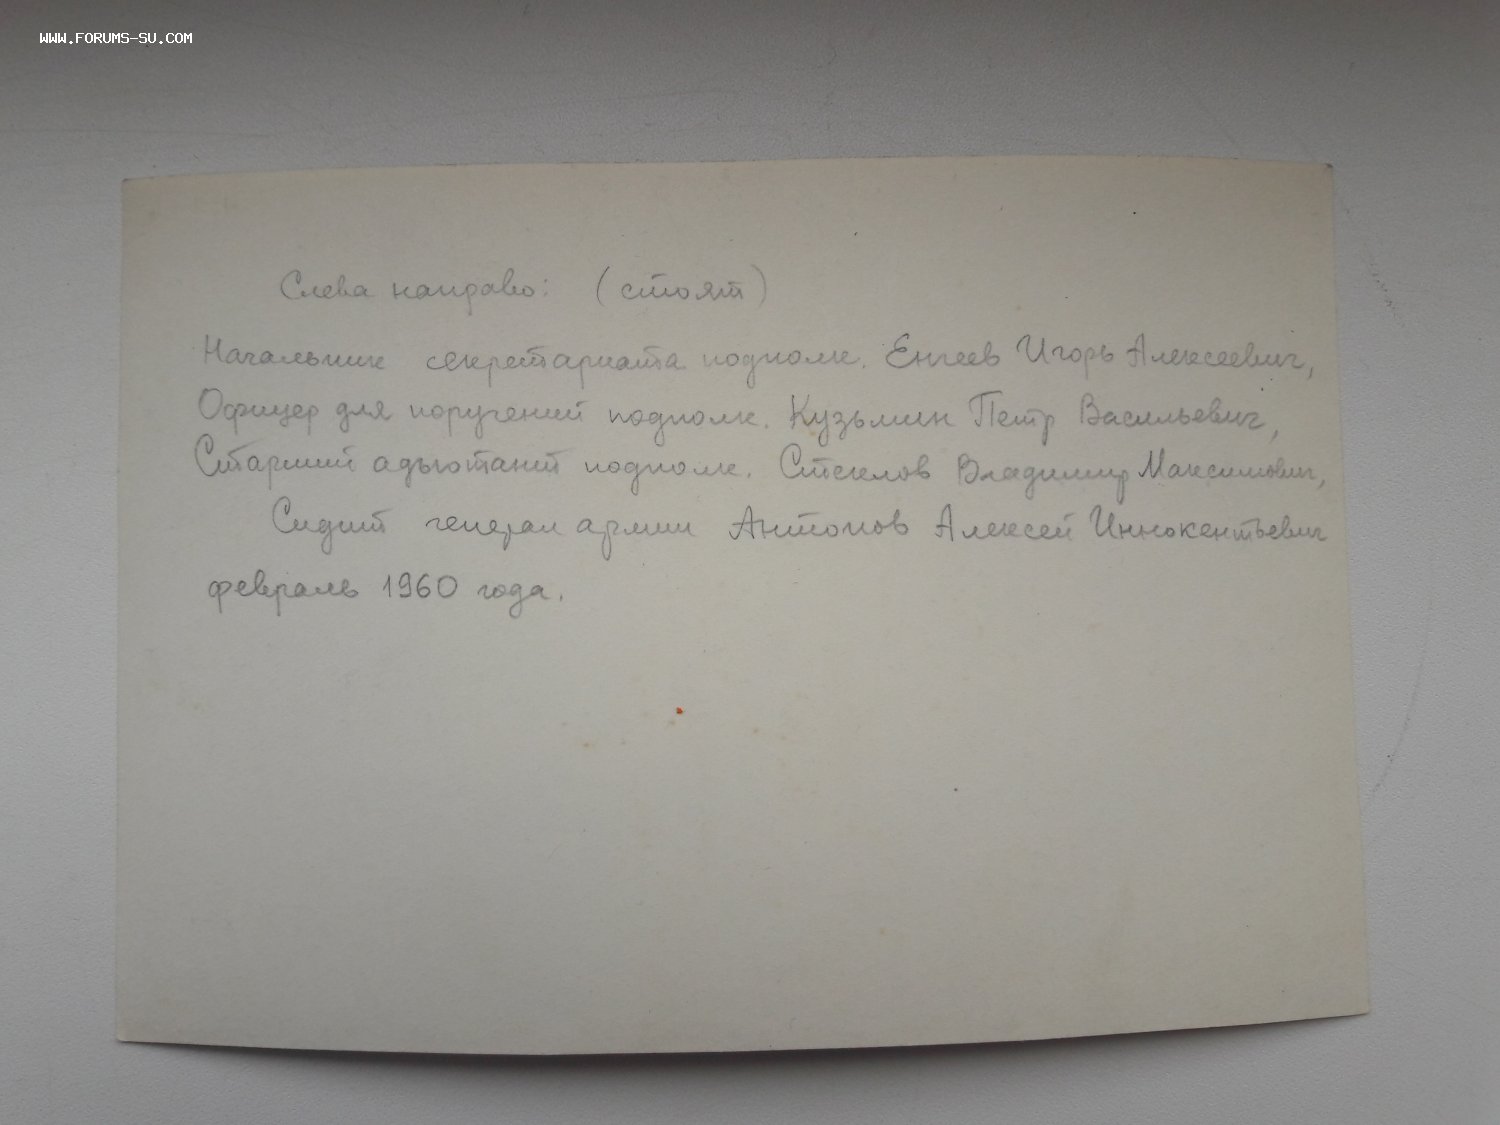 WWW.FORUMS-SU.COM
Слева направо: (стоят)
Начальник секретариата подполк. Енгеев Игорь Алексеевич,
Офицер для поручений подполк. Кузьмин Петр Васильевич,
Старший адъютант подполк. Стеклов Владимир Максимович,
Сидит генерал армии Антонов Алексей Иннокентьевич
февраль 1960 года.